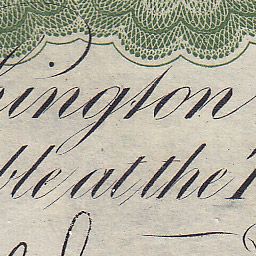 hington
ble at the